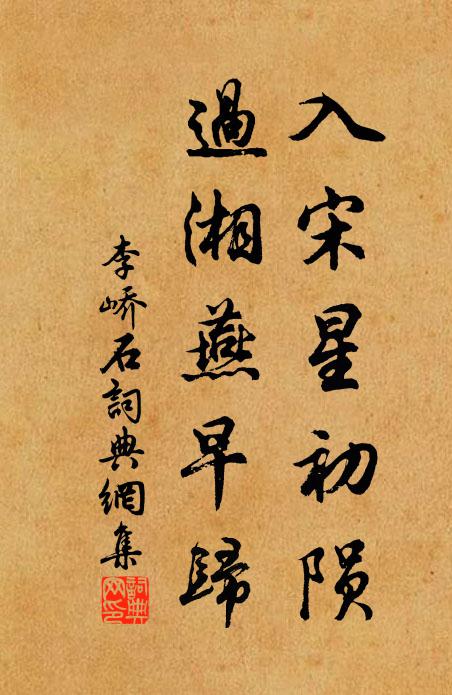 入宋星初陨
過湘燕早歸
李峤石詞典網集
詞典网印